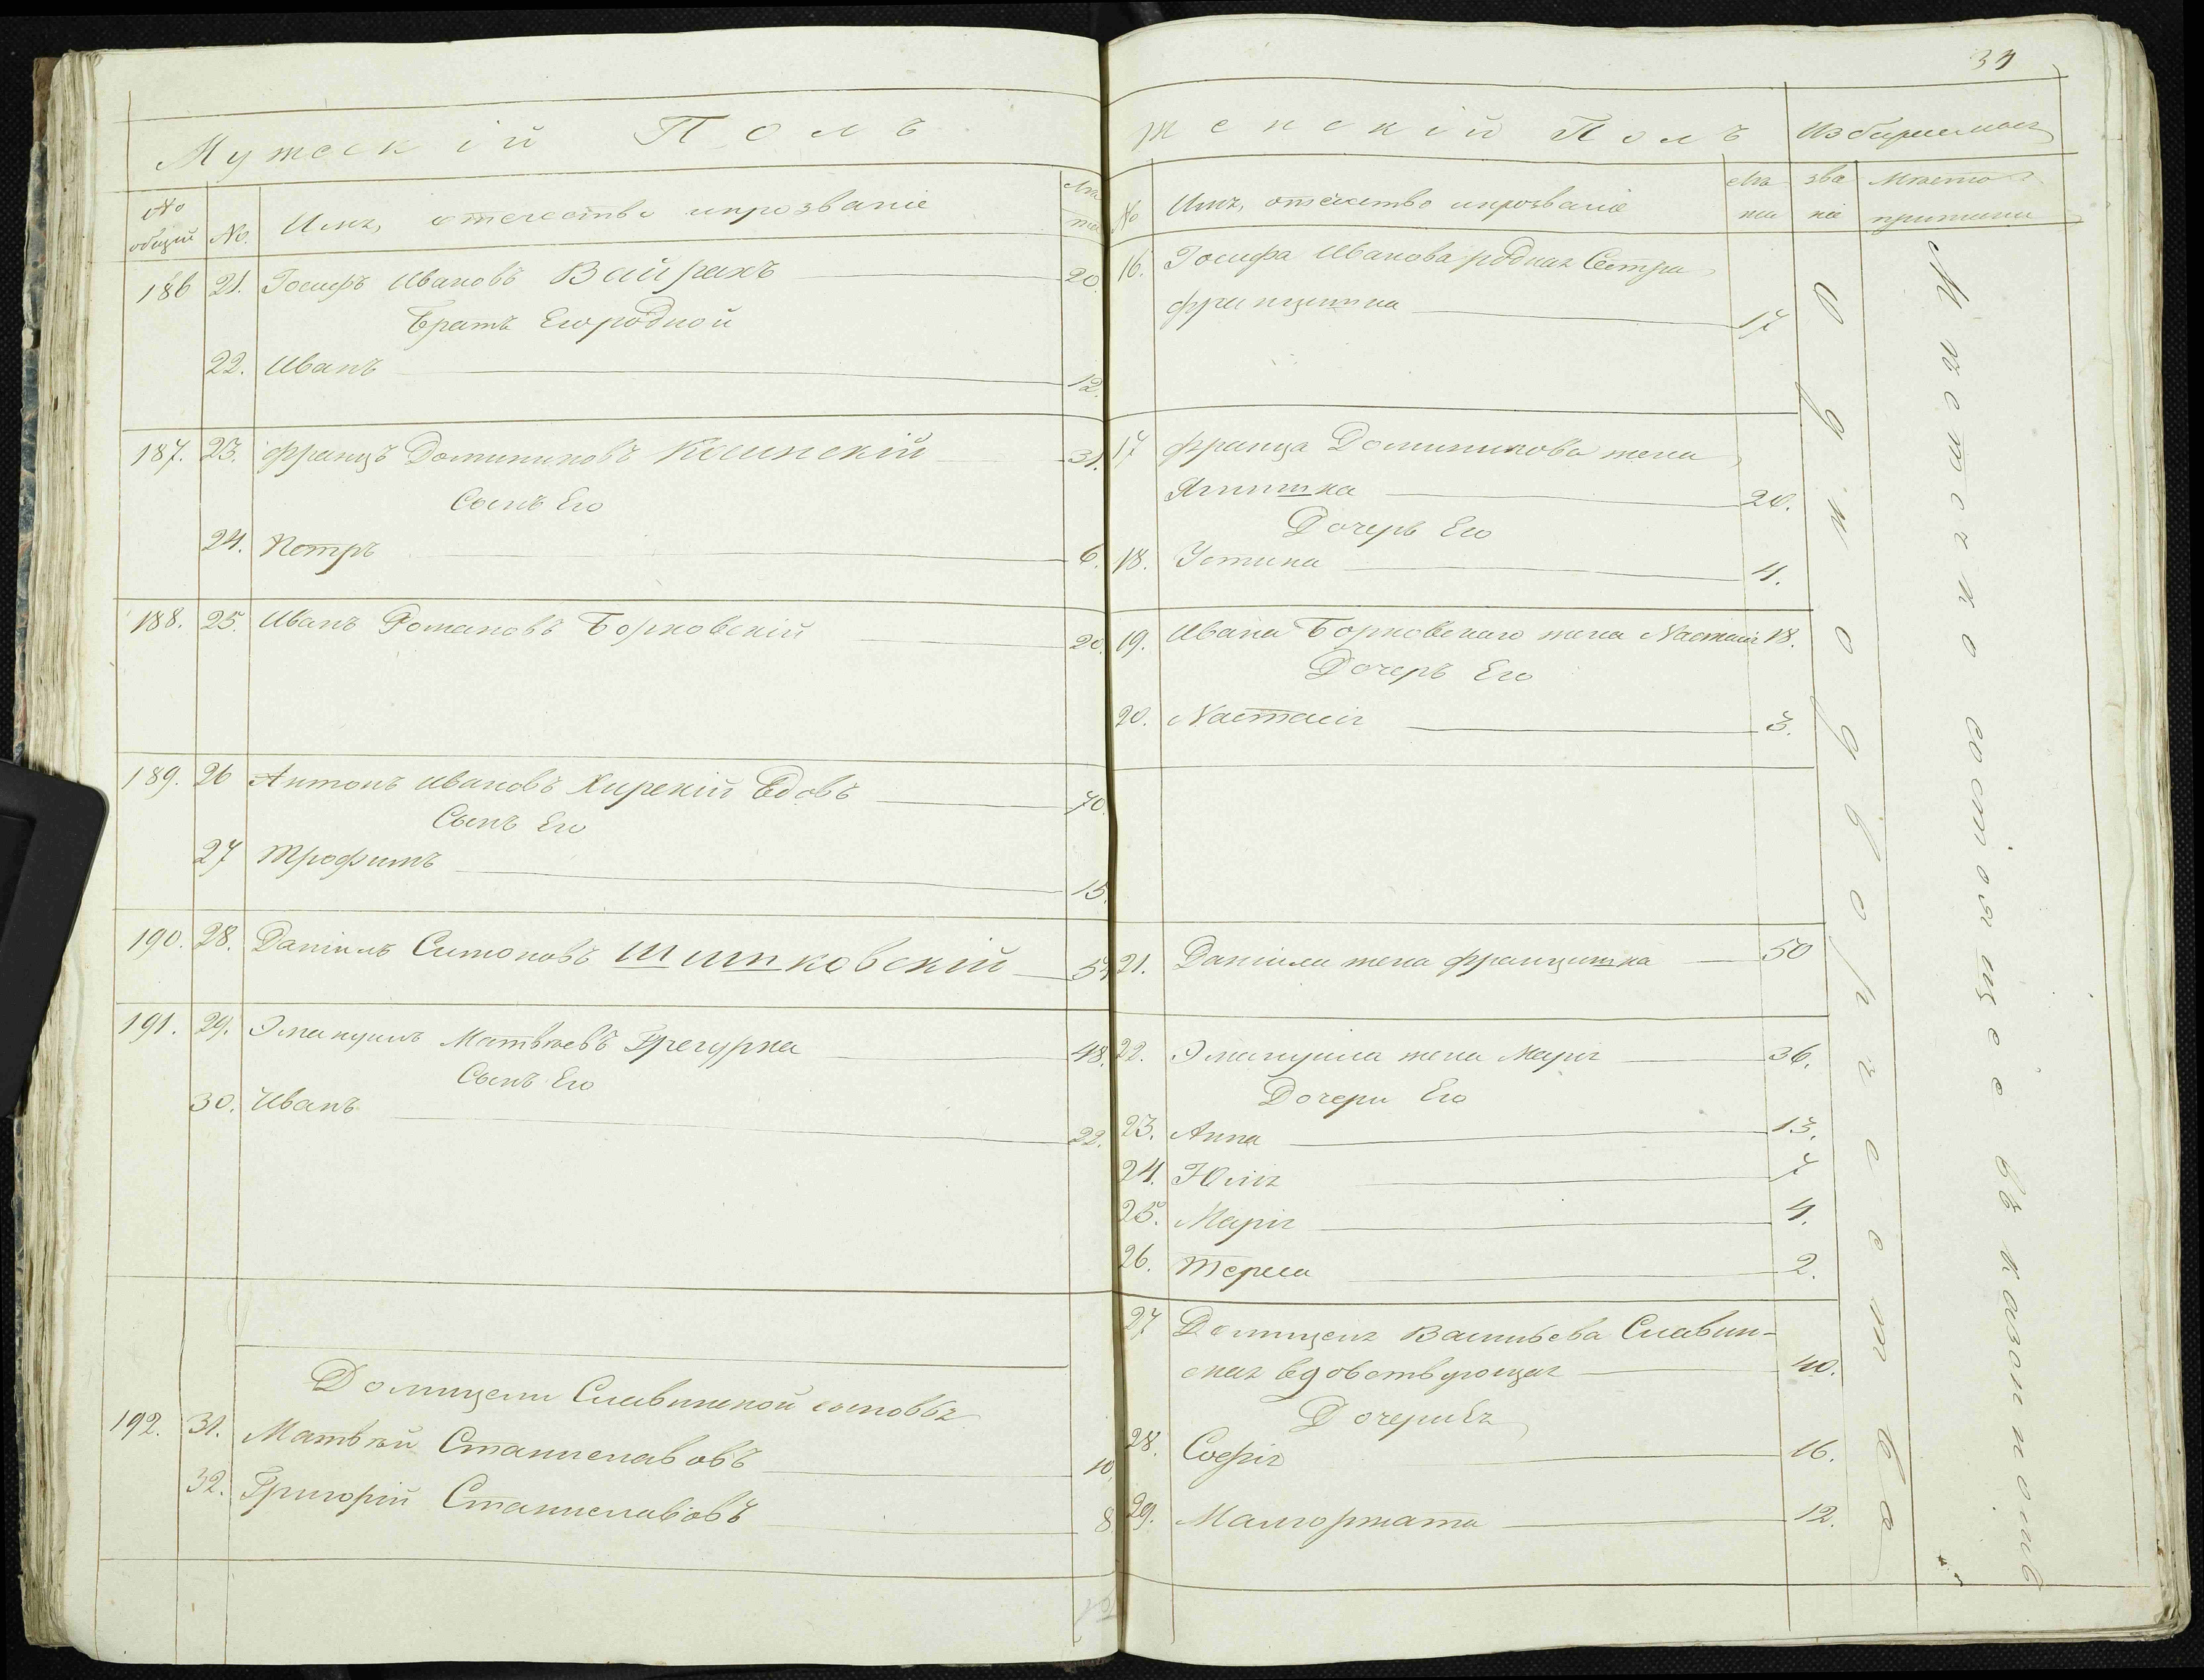 34
Мужескій Полъ
№ общій
№.
Имя, отечество и прозваніе
Лѣта
186 21. Іосифъ Ивановъ Вайрахъ 20.
Братъ Его родной
22. Иванъ 12.
187. 23. Францъ Доминиковъ Ксинскій 31.
Сынъ Его
24. Петръ 6.
188. 25. Иванъ Романовъ Борковскій 20.
189. 26 Антонъ Ивановъ Хирскій Вдовъ 70.
Сынъ Его
27 Трофимъ 15.
190. 28. Даніилъ Симоновъ Шитковскій
191. 29. Эмануилъ Матвѣевъ Грегурка 48.
Сынъ Его
30. Иванъ 22.
Домицели Славинской сыновья
192. 31. Матвѣй Станиславовъ 10.
32. Григорій Станиславовъ 8.
Женскій Полъ
Избираемая
№
Имя, отечество и прозваніе
Лѣта
званіе
Мѣсто приписки
16. Іосифа Иванова родная Сестра
Францишка 17
17 Франца Доминикова жена
Ягнишка 20.
Дочерь Его
18. Устина 4.
19. Ивана Борковскаго жена Настасія 18.
Дочеръ Его
20. Настасія 3.
21. Даніила жена Францишка 50
22. Эмануила жена Марія 36.
Дочери Его
23. Анна 13.
24. Юлія 7
25. Марія 4.
26. Тереса 2.
27 Домицеля Васильева Славин-
ская вдовствующая 40.
Дочери Ея
28. Софія 16.
29. Малгоржата 12.
Однодворчество